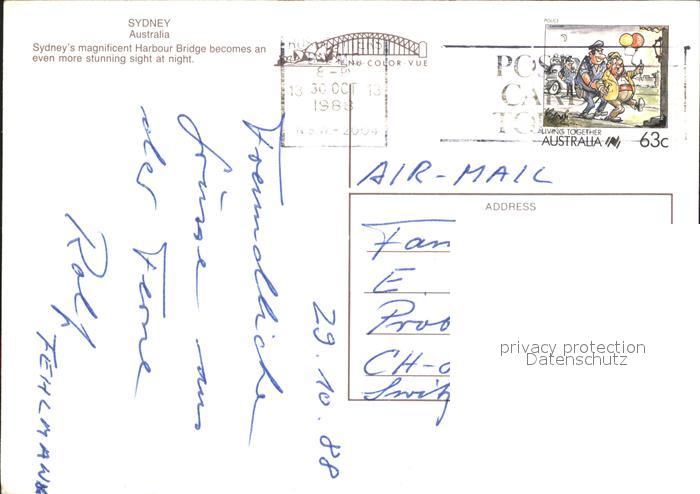 SYDNEY
Australia
Sydney's magnificent Harbour Bridge becomes an
even more stunning sight at night.
NU-COLOR-VUE
30 OCT
1988
13
13
N.S.W.-2004
POLICE
LIVING TOGETHER
AUSTRALIA 63c
AIR-MAIL
ADDRESS
Fam
E.
CH-
privacy protection
Datenschutz
29.10.88
Freundliche
Grüsse aus
der Ferne
Rolf
FEHLMANN